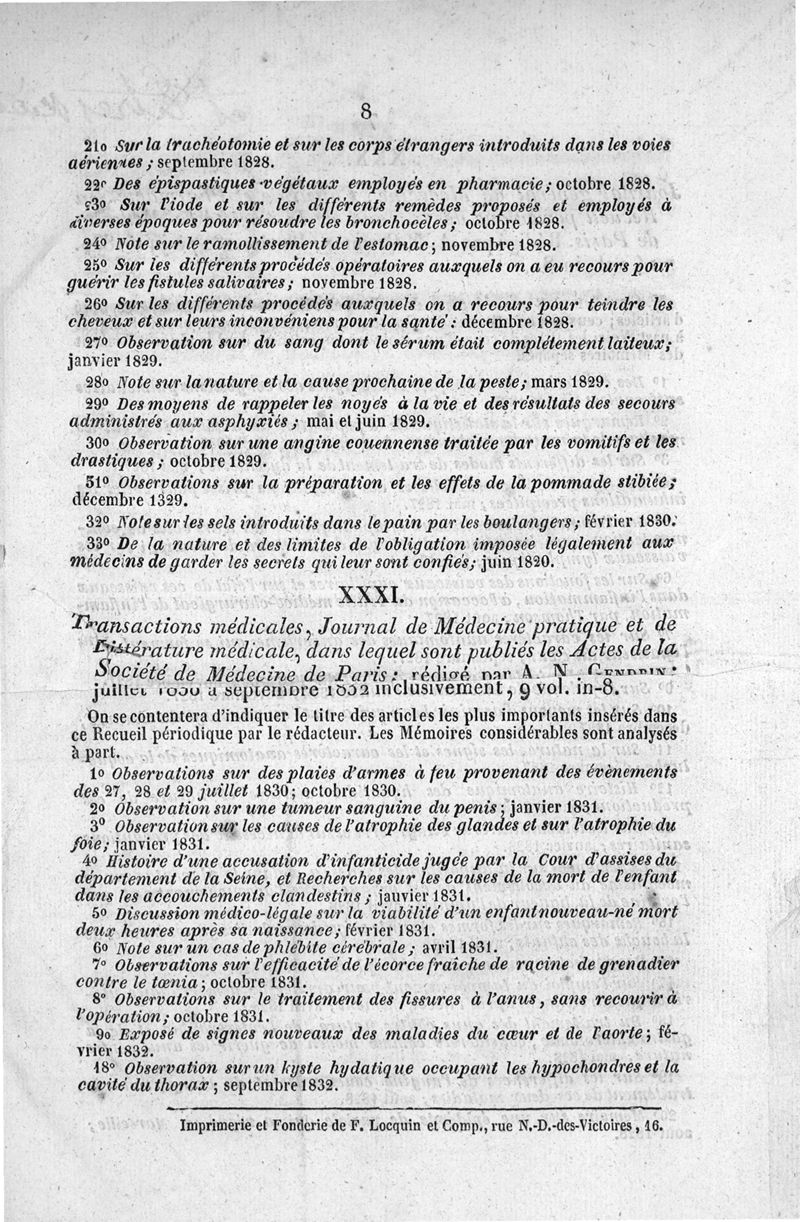 8
21o Sur la trachéotomie et sur les corps étrangers introduits dans les voies
aériennes ; septembre 1828.
22o Des épispastiques végétaux employés en pharmacie ; octobre 1828.
23o Sur l'iode et sur les différents remèdes proposés et employés à
diverses époques pour résoudre les bronchocèles ; octobre 1828.
24o Note sur le ramollissement de l'estomac ; novembre 1828.
25o Sur les différents procédés opératoires auxquels on a eu recours pour
guérir les fistules salivaires ; novembre 1828.
26o Sur les différents procédés auxquels on a recours pour teindre les
cheveux et sur leurs inconvéniens pour la santé : décembre 1828.
27o Observation sur du sang dont le sérum était complétement laiteux ;
janvier 1829.
28o Note sur la nature et la cause prochaine de la peste ; mars 1829.
29o Des moyens de rappeler les noyés à la vie et des résultats des secours
administrés aux asphyxiés ; mai et juin 1829.
30o Observation sur une angine couennense traitée par les vomitifs et les
drastiques ; octobre 1829.
31o Observations sur la préparation et les effets de la pommade stibiée ;
décembre 1329.
32o Note sur les sels introduits dans le pain par les boulangers ; février 1830.
33o De la nature et des limites de l'obligation imposée légalement aux
médecins de garder les secrets qui leur sont confiés ; juin 1820.
XXXI.
Transactions médicales, Journal de Médecine pratique et de
Littérature médicale, dans lequel sont publiés les Actes de la
Société de Médecine de Paris : rédigé par A. N. GENDRIN :
juillet 1830 à septembre 1832 inclusivement, 9 vol. in-8.
On se contentera d'indiquer le titre des articles les plus importants insérés dans
ce Recueil périodique par le rédacteur. Les Mémoires considérables sont analysés
à part.
1o Observations sur des plaies d'armes à feu provenant des évènements
des 27, 28 et 29 juillet 1830 ; octobre 1830.
2o Observation sur une tumeur sanguine du penis ; janvier 1831.
3o Observation sur les causes de l'atrophie des glandes et sur l'atrophie du
foie ; janvier 1831.
4o Histoire d'une accusation d'infanticide jugée par la Cour d'assises du
département de la Seine, et Recherches sur les causes de la mort de l'enfant
dans les accouchements clandestins ; janvier 1831.
5o Discussion médico-légale sur la viabilité d'un enfant nouveau-né mort
deux heures après sa naissance ; février 1831.
6o Note sur un cas de phlébite cérébrale ; avril 1831.
7o Observations sur l'efficacité de l'écorce fraîche de racine de grenadier
contre le tœnia ; octobre 1831.
8o Observations sur le traitement des fissures à l'anus, sans recourir à
l'opération ; octobre 1831.
9o Exposé de signes nouveaux des maladies du cœur et de l'aorte ; fé-
vrier 1832.
18o Observation sur un kyste hydatique occupant les hypochondres et la
cavité du thorax ; septembre 1832.
Imprimerie et Fonderie de F. Locquin et Comp., rue N.-D.-des-Victoires, 16.